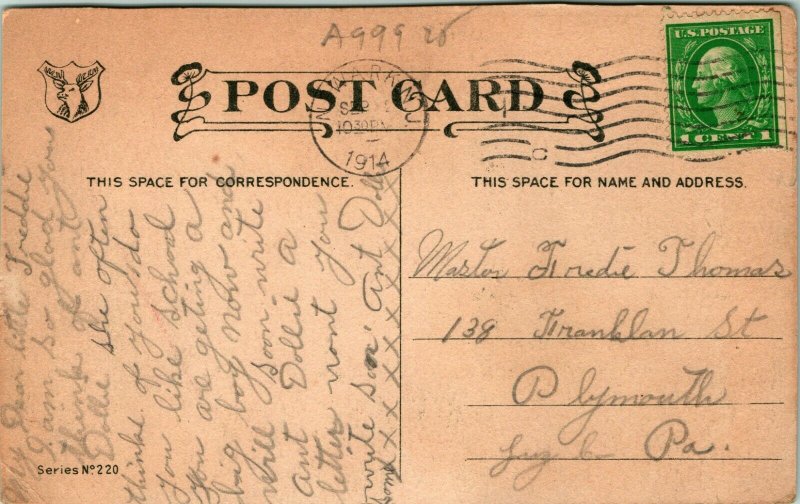 A999 20
POST CARD
NEWARK, N.J.
SEP
1030PM
1914
U.S. POSTAGE
1 CENT 1
THIS SPACE FOR CORRESPONDENCE.
THIS SPACE FOR NAME AND ADDRESS.
My Dear little Freddie
I am so glad you
think of ant
Dollie she often
thinke of you do
you like school
you are geting a
big boy now and
will soon write
ant Dollie a
letter wont you
write son Ant Doll
xxxxxxxx
Master Fredie Thomas
138 Franklan St
Plymouth
Luz Co Pa.
Series No. 220